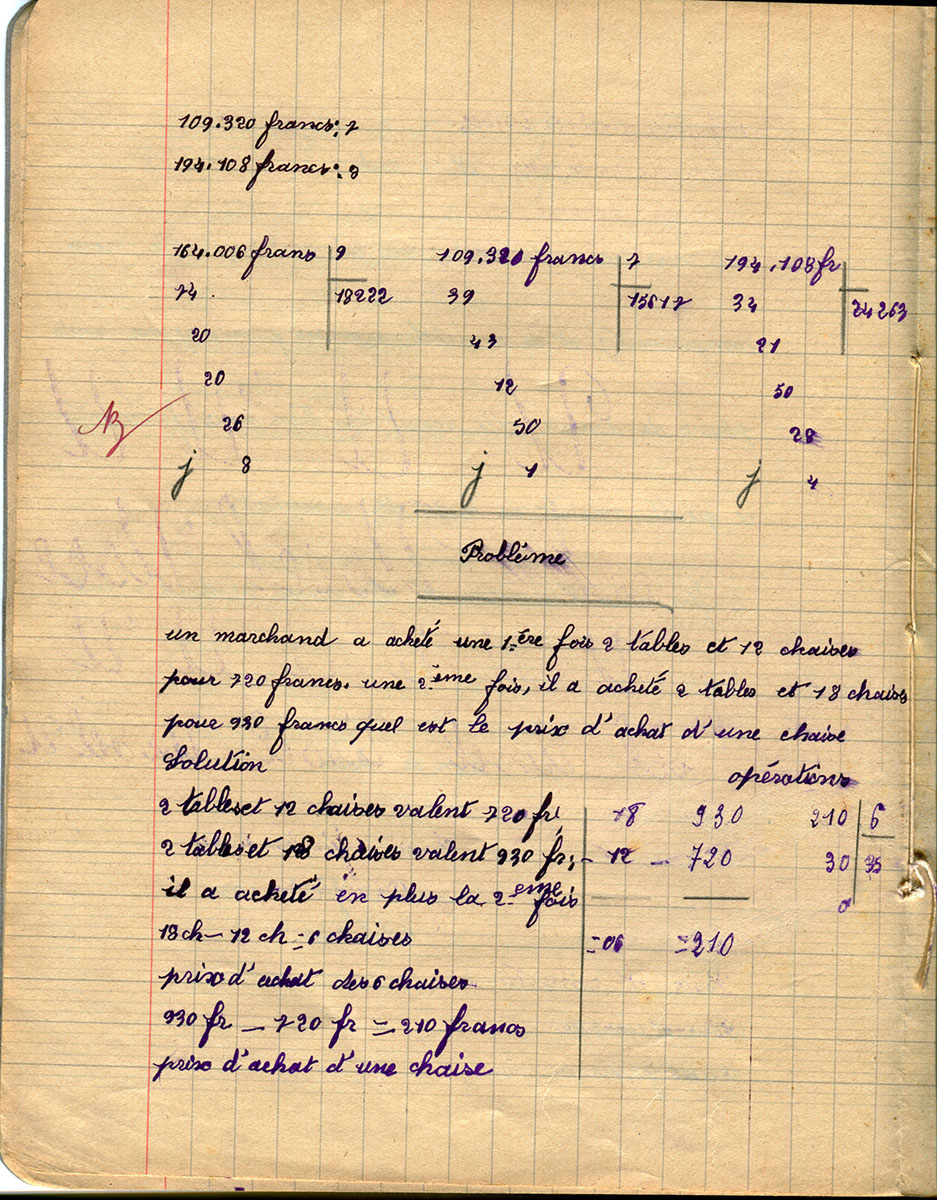 109.320 francs: 7
194.108 francs: 8
164.006 frans 9 109.320 francs 7 194.108 fr
74 18222 39 15617 34 24263
20 43 21
20 12 50
26 50 28
B
j 8 j 1 j 4
Problème
un marchand a acheté une 1ère fois 2 tables et 12 chaises
pour 720 francs. une 2ème fois, il a acheté 2 tables et 18 chaises
pour 930 francs quel est le prix d'achat d'une chaise
Solution opérations
2 tables et 12 chaises valent 720 fr 18 930 210 6
2 tables et 18 chaises valent 930 fr; - 12 - 720 30 35
il a acheté en plus la 2ème fois 0
18 ch - 12 ch = 6 chaises = 06 = 210
prix d'achat des 6 chaises
930 fr - 720 fr = 210 francs
prix d'achat d'une chaise